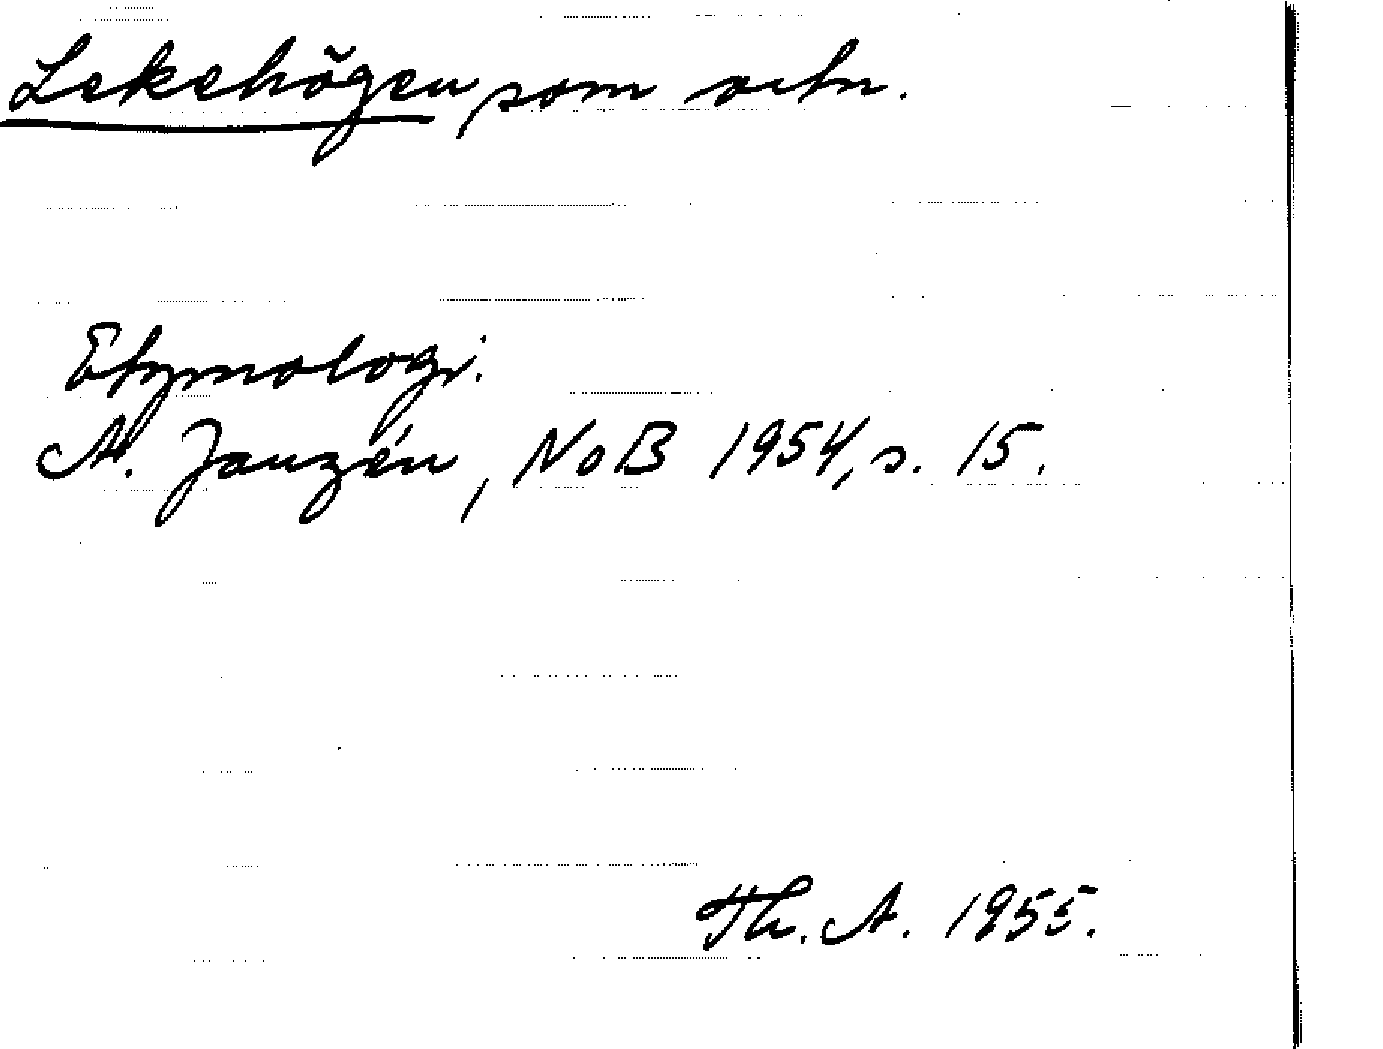 Lekehögen, som ortn.
Etymologi.
A. Janzén, NoB 1954, s. 15.
Th. A. 1955.